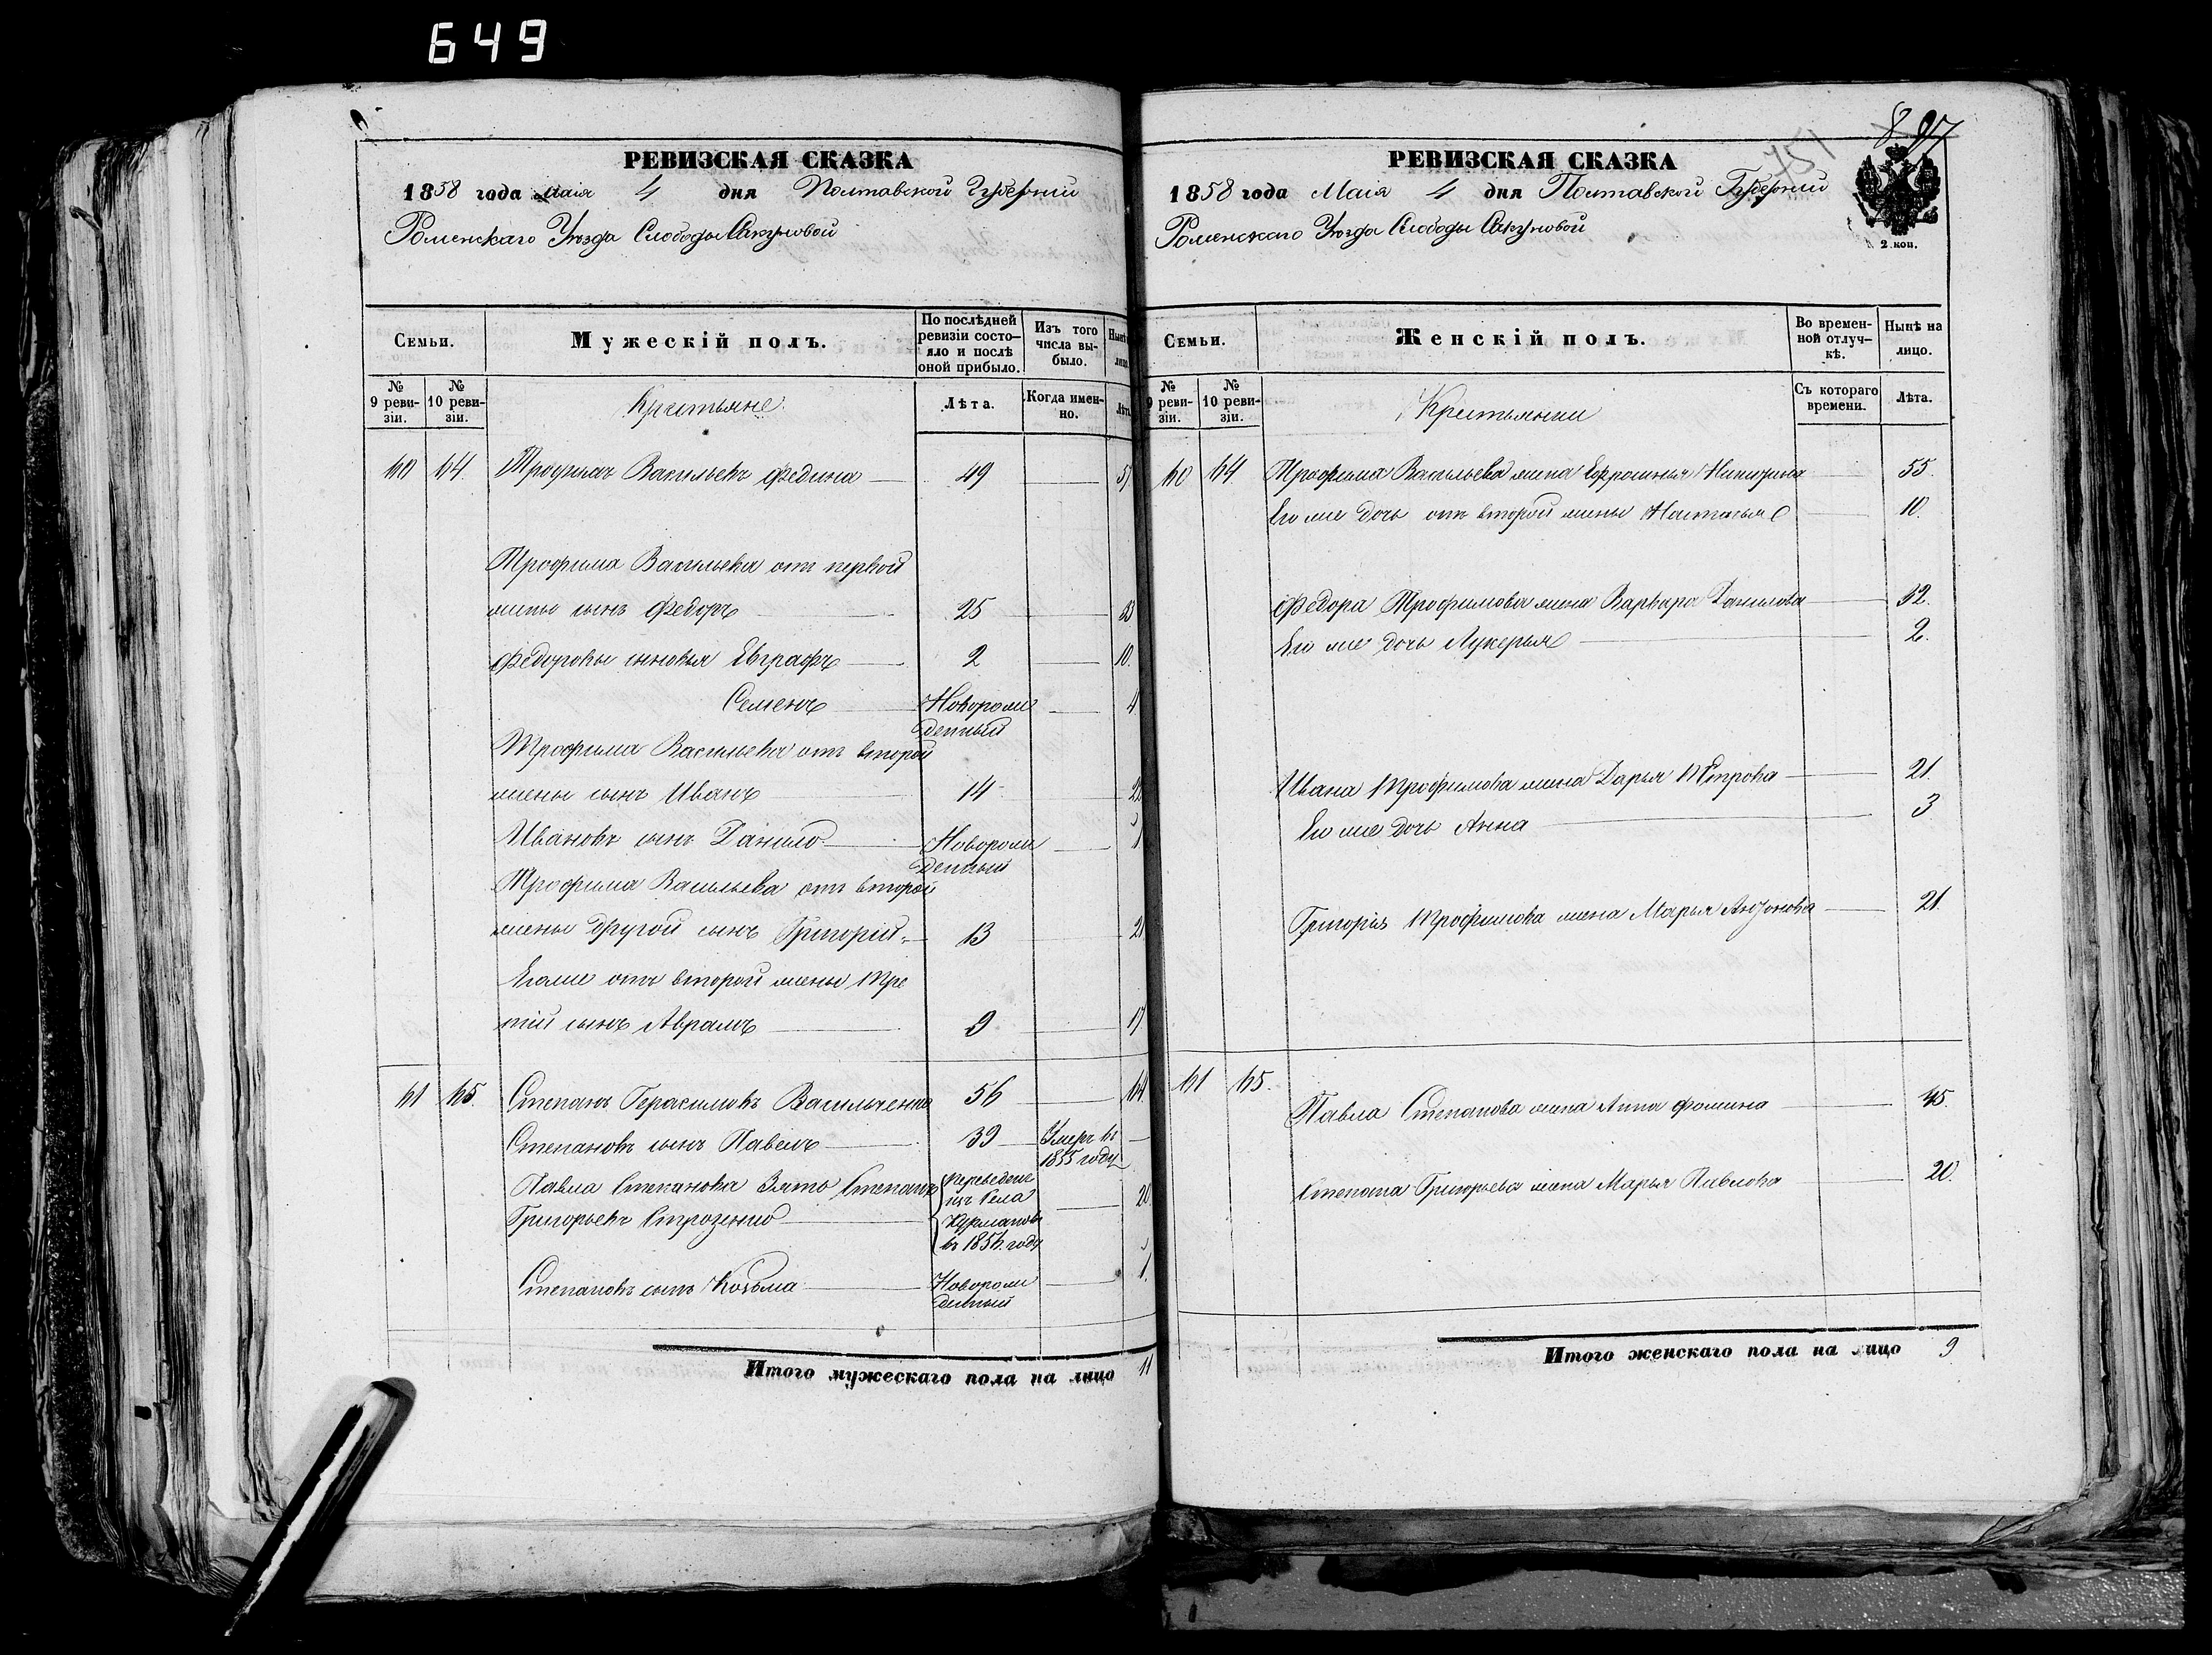 649
РЕВИЗСКАЯ СКАЗКА
1858 года маія 4 дня Полтавской Губерніи
Роменскаго Уѣзда Слободы Сакуновой
Семьи.
№ 9 ревизіи.
№ 10 ревизіи.
Мужескій полъ.
По послѣдней ревизіи состояло и послѣ оной прибыло.
Изъ того числа выбыло.
Нынѣ
Лѣта.
Когда именно.
Крестьяне
60 64. Трофимъ Васильевъ Федина 49 57
Трофима Васильева отъ первой
жены сынъ Федоръ 25 33
Федоровы сыновья Евграфъ 2 10.
Семенъ Новорожденный 4
Трофима Васильева отъ второй
жены сынъ Иванъ 14 22
Ивановъ сынъ Данило Новорожденный
Трофима Васильева отъ второй
жены другой сынъ Григорій 13 21
Егоже отъ второй жены тре
тій сынъ Аврамъ 9 17
61 65. Степанъ Герасимовъ Васильченко 56 64
Степановъ сынъ Павелъ 39 Умеръ въ 1855 году
Павла Степанова Зять Степанъ
Григорьевъ переведенъ изъ Села Курмановъ въ 1856. году 20.
Степановъ сынъ Козьма Новорожденный 1.
Итого мужескаго пола на лицо 11
8 751
РЕВИЗСКАЯ СКАЗКА
1858 года Маія 4 дня Полтавской Губерніи
Роменскаго Уѣзда Слободы Сакуновой
2 коп.
Семьи.
№ 9 ревизіи.
№ 10 ревизіи.
Женскій полъ.
Во временной отлучкѣ.
Нынѣ на лицо.
Съ котораго времени.
Лѣта.
Крестьянки
60 64 Трофима Васильева жена Ефросинья 55.
Его же дочь отъ второй жены Настасья 10.
Федора Трофимова жена Варвара Данилова 32.
Его же дочь Лукерья 2.
Ивана Трофимова жена Дарья Петрова 21.
Его же дочь Анна 3
Григорія Трофимова жена Марья 21.
61 65. Павла Степанова жена Анна Фомина 45.
Степана Григорьева жена Марья Павлова 20.
Итого женскаго пола на лицо 9